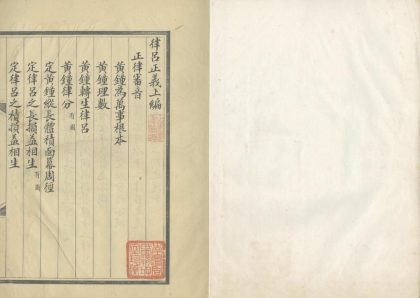 律呂正義上編
正律審音
黃鐘為萬事根本
黃鐘理數
黃鐘轉生律呂
黃鐘律分 有圖
定黃鐘縱長體積面冪周徑
定律呂之長損益相生 有圖
定律呂之積損益相生